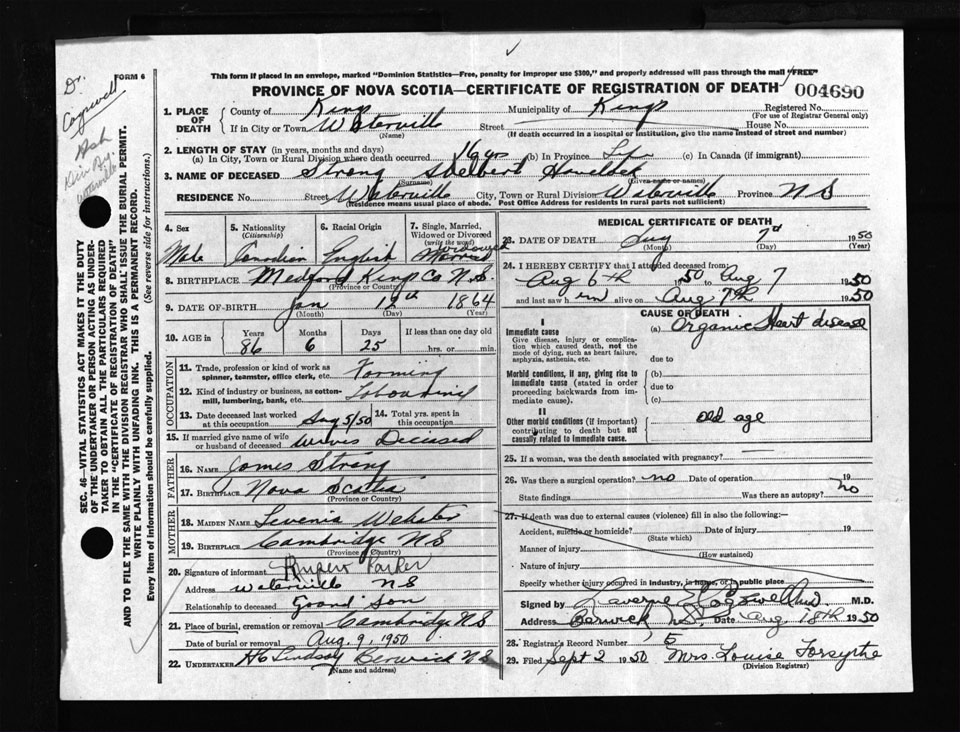 Dr.
Cogswell
FORM 6
This form if placed in an envelope, marked "Dominion Statistics—Free, penalty for improper use $300," and properly addressed will pass through the mail "FREE"
PROVINCE OF NOVA SCOTIA—CERTIFICATE OF REGISTRATION OF DEATH 004690
SEC. 46—VITAL STATISTICS ACT MAKES IT THE DUTY
OF THE UNDERTAKER OR PERSON ACTING AS UNDER-
TAKER TO OBTAIN ALL THE PARTICULARS REQUIRED
IN THE "CERTIFICATE OF REGISTRATION OF DEATH"
AND TO FILE THE SAME WITH THE DIVISION REGISTRAR WHO SHALL ISSUE THE BURIAL PERMIT.
WRITE PLAINLY WITH UNFADING INK. THIS IS A PERMANENT RECORD.
Every item of information should be carefully supplied. (See reverse side for instructions.)
1. PLACE OF DEATH County of Kings Municipality of Kings Registered No.
(For use of Registrar General only)
If in City or Town Waterville Street House No.
(Name) (If death occurred in a hospital or institution, give the name instead of street and number)
2. LENGTH OF STAY (in years, months and days)
(a) In City, Town or Rural Division where death occurred 16 yrs (b) In Province Life (c) In Canada (if immigrant)
3. NAME OF DECEASED Strong Adelbert Havelock
(Surname) (Given name or names)
RESIDENCE No. Street Waterville City, Town or Rural Division Waterville Province N S
(Residence means usual place of abode. Post Office Address for residents in rural parts not sufficient)
4. Sex 5. Nationality (Citizenship) 6. Racial Origin 7. Single, Married, Widowed or Divorced (write the word)
Male Canadian English Married Widowed
8. BIRTHPLACE Medford Kings Co N.S.
(Province or Country)
9. DATE OF BIRTH Jan 12th 1864
(Month) (Day) (Year)
10. AGE in Years Months Days If less than one day old
86 6 25 hrs. or min.
OCCUPATION
11. Trade, profession or kind of work as spinner, teamster, office clerk, etc. Farming
12. Kind of industry or business, as cotton-mill, lumbering, bank, etc.
13. Date deceased last worked at this occupation 5/50 14. Total yrs. spent in this occupation
15. If married give name of wife or husband of deceased Wives Deceased
FATHER
16. Name James Strong
17. Birthplace Nova Scotia
(Province or Country)
MOTHER
18. Maiden Name Levenia Webster
19. Birthplace Cambridge N S
(Province or Country)
20. Signature of informant Rupert Parker
Address Waterville N S
Relationship to deceased Grand Son
21. Place of burial, cremation or removal Cambridge N S
Date of burial or removal Aug. 9, 1950
22. UNDERTAKER H C Lindsay Berwick N S
(Name and address)
MEDICAL CERTIFICATE OF DEATH
23. DATE OF DEATH Aug 7th 1950
(Month) (Day) (Year)
24. I HEREBY CERTIFY that I attended deceased from
Aug 6th 1950 to Aug 7 1950
and last saw him alive on Aug 7th 1950
CAUSE OF DEATH
I
Immediate cause (a) Organic Heart disease
Give disease, injury or complication which caused death, not the mode of dying, such as heart failure, asphyxia, asthenia, etc.
due to
Morbid conditions, if any, giving rise to immediate cause (stated in order proceeding backwards from immediate cause). (b)
due to
(c)
II
Other morbid conditions (if important) contributing to death but not causally related to immediate cause. old age
25. If a woman, was the death associated with pregnancy?
26. Was there a surgical operation? no Date of operation 19
State findings Was there an autopsy? no
27. If death was due to external causes (violence) fill in also the following:—
Accident, suicide or homicide? Date of injury 19
(State which)
Manner of injury
(How sustained)
Nature of injury
Specify whether injury occurred in industry, in home, or in public place
Signed by Laverne H Cogswell M.D.
Address Berwick N.S. Date Aug 18th 1950
28. Registrar's Record Number 5
29. Filed Sept 2 1950 Mrs. Louise Forsythe
(Division Registrar)